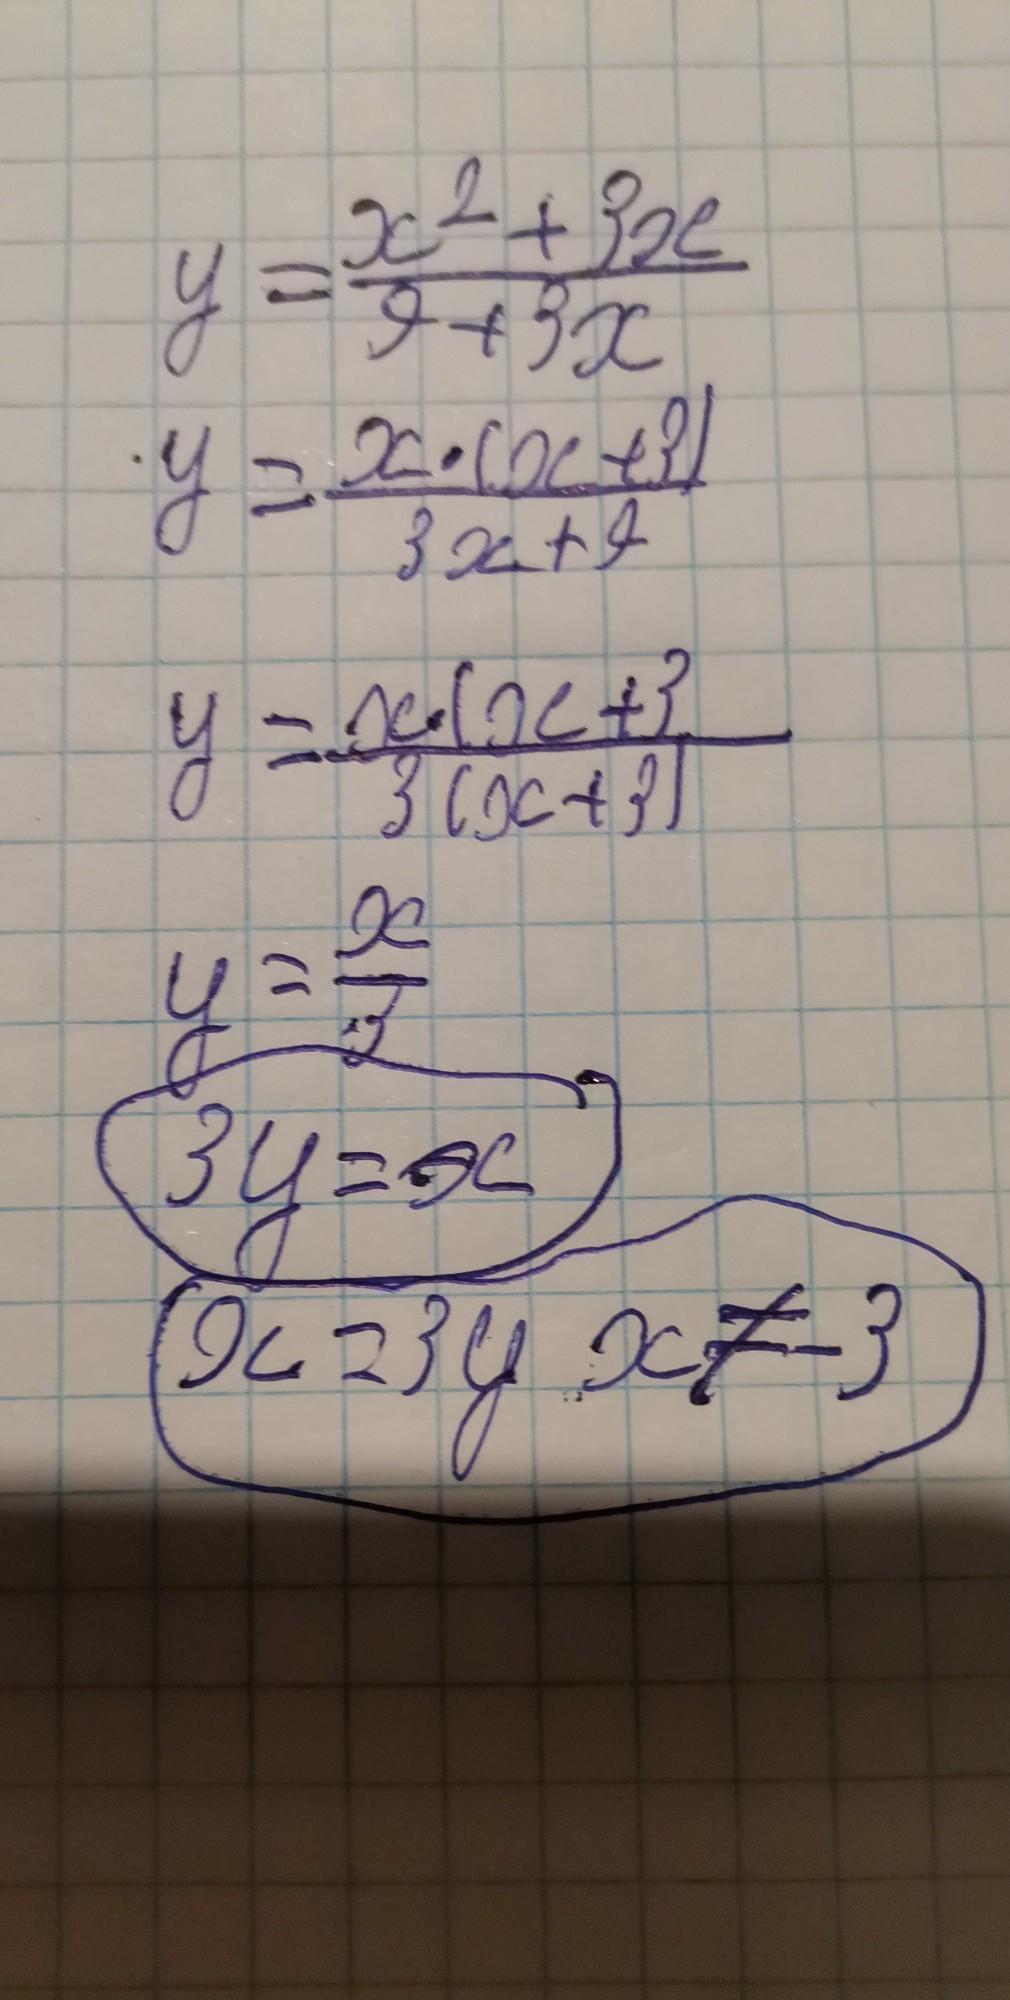 y = x² + 3x / 9 + 3x
y = x·(x+3) / 3x + 9
y = x·(x+3 / 3(x+3)
y = x / 3
3y = x
x = 3y x ≠ -3